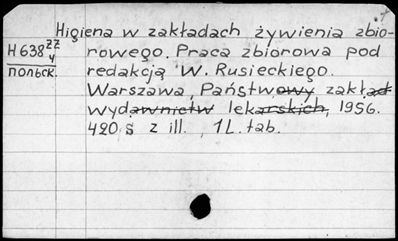 Higiena w zakładach żywienia zbio-
H 638 22/4
rowego. Praca zbiorowa pod
польск.
redakcją W. Rusieckiego.
Warszawa, Państwowy zakład
wydawnictw lekarskich, 1956.
420 s z ill., 1 L. tab.